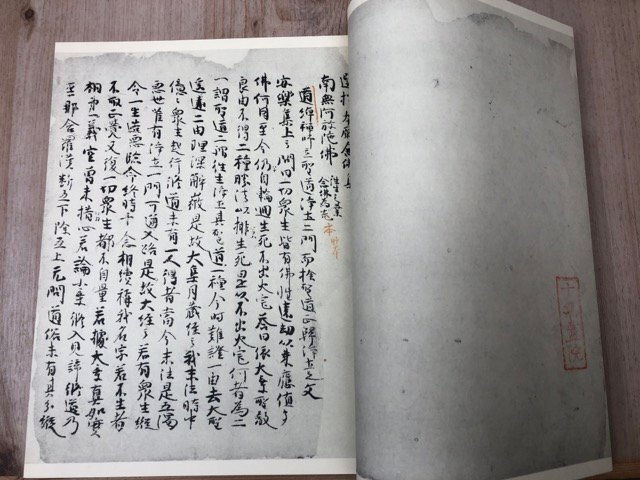 選択本願念佛集
南無阿弥陀佛 往生之業 念佛為先 本
道綽禅師立聖道浄土二門而捨聖道正歸浄土之文
安樂集上云問曰一切衆生皆有佛性遠劫以来應値多
佛何因至今仍自輪廻生死不出火宅荅曰依大乗聖教
良由不得二種勝法以排生死是以不出火宅何者為二
一謂聖道二謂往生浄土其聖道一種今時難證一由去大聖
遥遠二由理深解微是故大集月蔵経云我末法時中
億々衆生起行修道未有一人得者當今末法是五濁
悪世唯有浄土一門可通入路是故大経云若有衆生縦
令一生造悪臨命終時十念相續稱我名字若不生者
不取正覺又復一切衆生都不自量若據大乗真如實
相第一義空曽未措心若論小乗修入見諦修道乃
至那含羅漢断五下除五上无問道俗未有其分縦